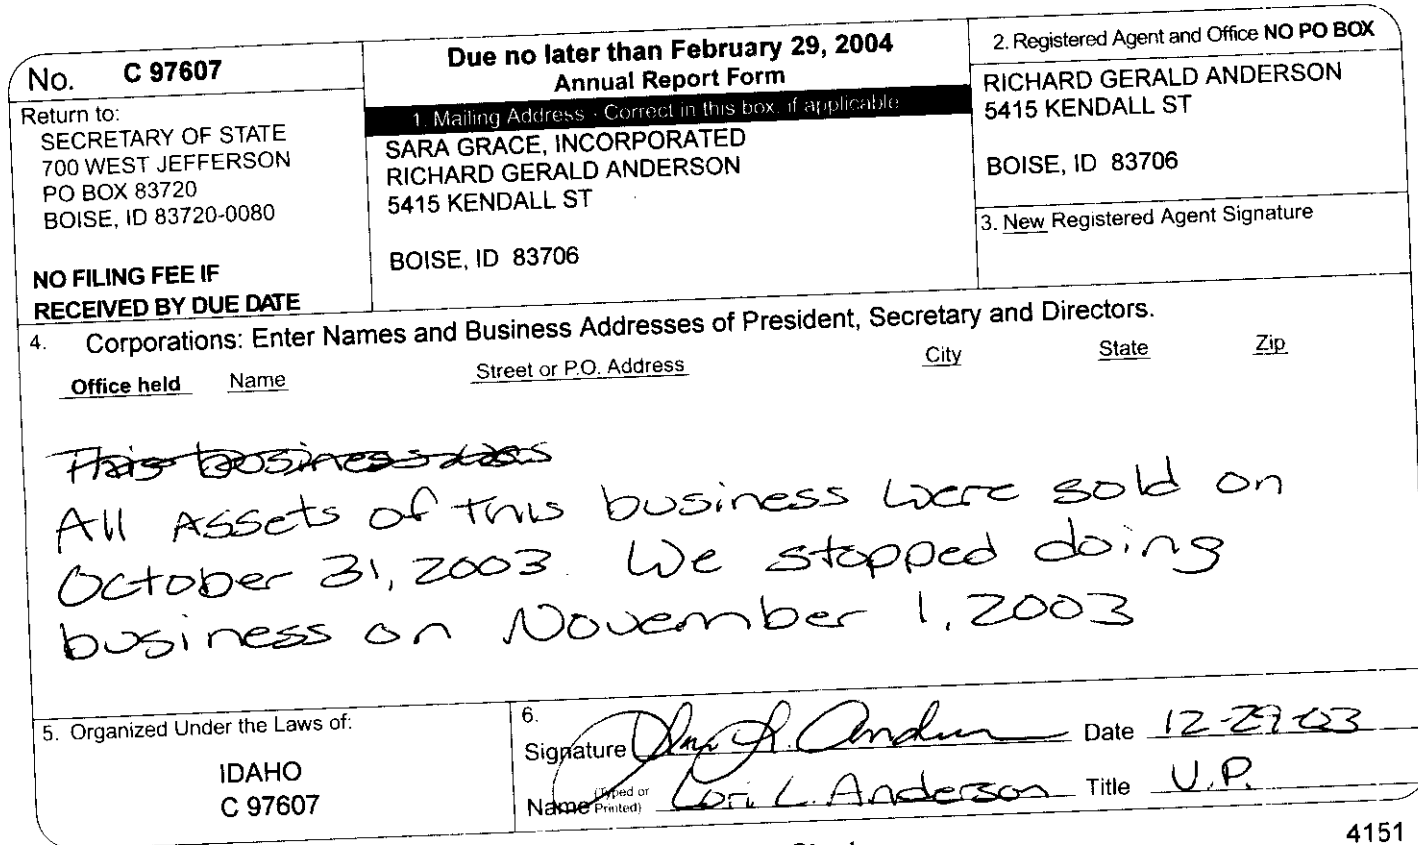 No. C 97607
Return to:
SECRETARY OF STATE
700 WEST JEFFERSON
PO BOX 83720
BOISE, ID 83720-0080
NO FILING FEE IF
RECEIVED BY DUE DATE
Due no later than February 29, 2004
Annual Report Form
1. Mailing Address - Correct in this box, if applicable
SARA GRACE, INCORPORATED
RICHARD GERALD ANDERSON
5415 KENDALL ST
BOISE, ID 83706
2. Registered Agent and Office NO PO BOX
RICHARD GERALD ANDERSON
5415 KENDALL ST
BOISE, ID 83706
3. New Registered Agent Signature
4. Corporations: Enter Names and Business Addresses of President, Secretary and Directors.
Office held Name Street or P.O. Address City State Zip
This business was
All Assets of this business were sold on
October 31, 2003. We stopped doing
business on November 1, 2003
5. Organized Under the Laws of:
IDAHO
C 97607
6.
Signature Date 12-29-03
Name (Typed or Printed) Lori L. Anderson Title V.P.
4151